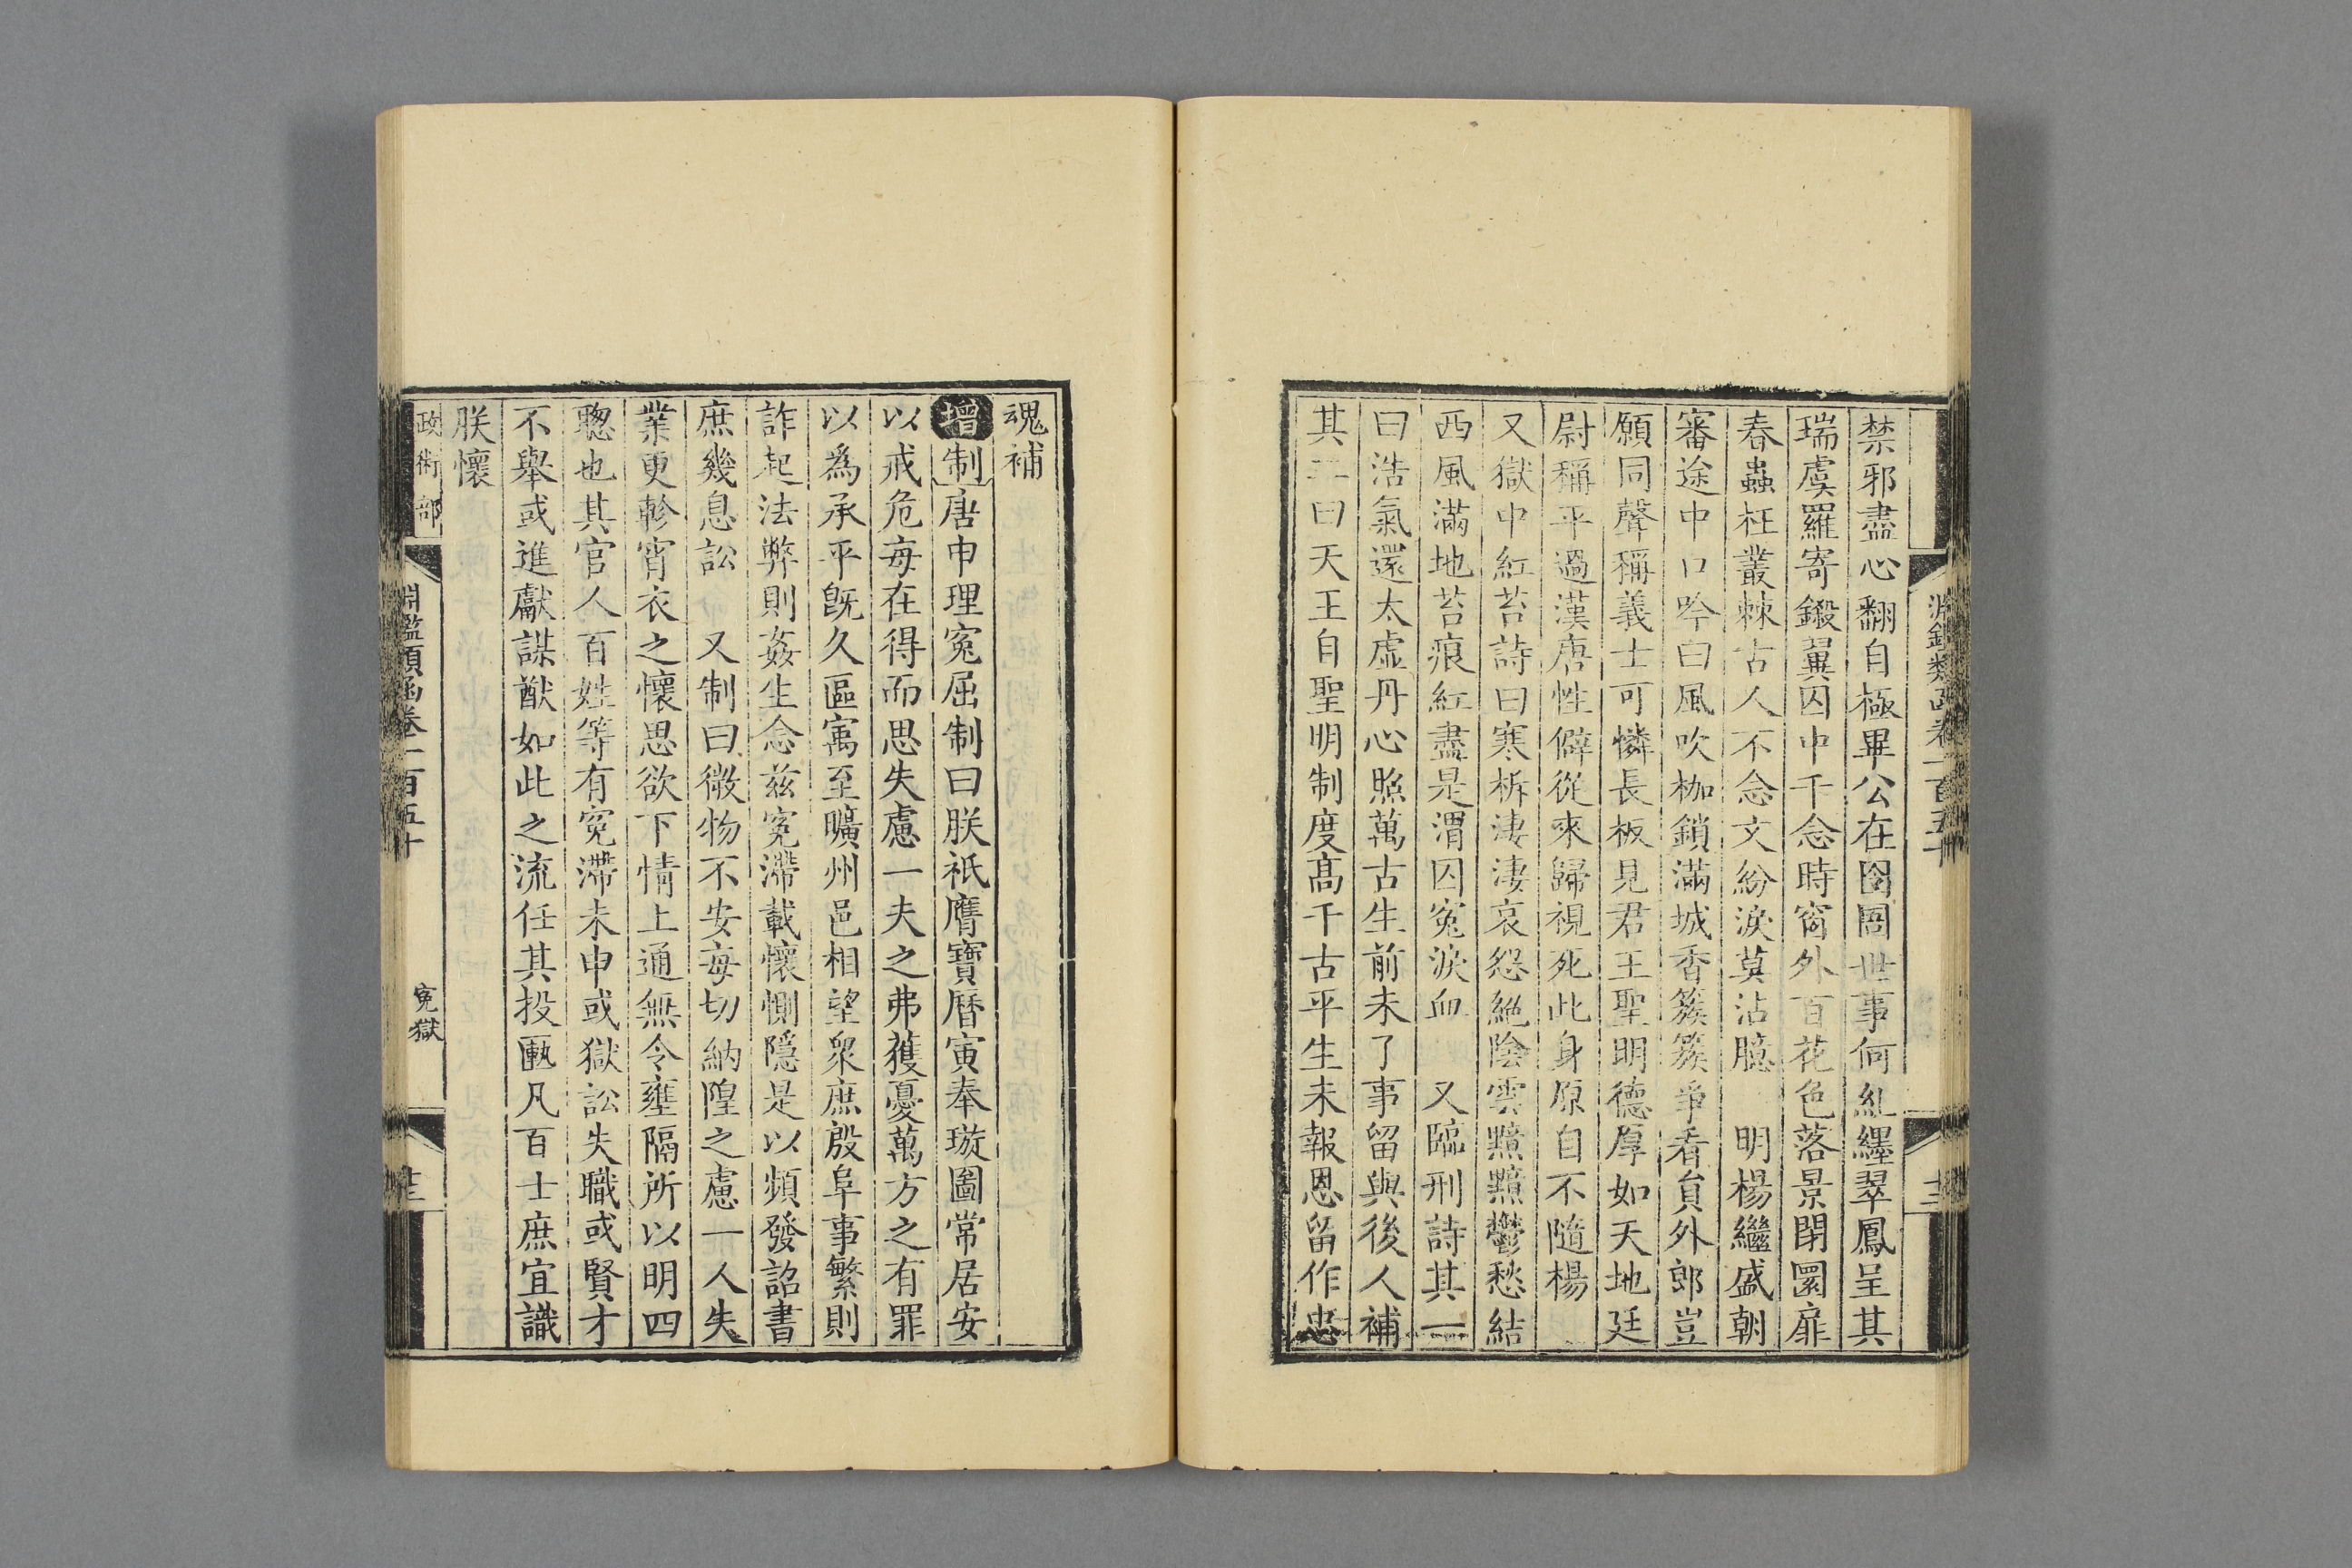 禁邪盡心翻自極畢公在囹圄世事何糺纆翠鳳呈其
瑞虞羅寄鎩翼囚中千念時窗外百花色落景閉圜扉
春蟲枉叢棘古人不念文紛淚莫沾臆　明楊繼盛朝
審途中口吟曰風吹枷鎖滿城香簇簇爭看負外郎豈
願同聲稱義士可憐長板見君王聖明德厚如天地廷
尉稱平過漢唐性僻從來歸視死此身原自不隨楊
又獄中紅苔詩曰寒柝淒淒哀怨絕陰雲黯黯鬱愁結
西風滿地苔痕紅盡是渭囚寃淚血　又臨刑詩其一
曰浩氣還太虛丹心照萬古生前未了事留與後人補
其二曰天王自聖明制度高千古平生未報恩留作忠
淵鑑類函卷一百五十
十二
魂補
增制唐申理寃屈制曰朕祇膺寶曆寅奉璇圖常居安
以戒危每在得而思失慮一夫之弗獲憂萬方之有罪
以為承平旣久區寓至曠州邑相望衆庶殷阜事繁則
詐起法弊則姦生念兹寃滯載懷惻隱是以頻發詔書
庶幾息訟　又制曰微物不安每切納隍之慮一人失
業更軫宵衣之懷思欲下情上通無令壅隔所以明四
聰也其官人百姓等有寃滯未申或獄訟失職或賢才
不舉或進獻謀猷如此之流任其投匭凡百士庶宜識
朕懷
政術部
淵鑑類函卷一百五十
寃獄
十三